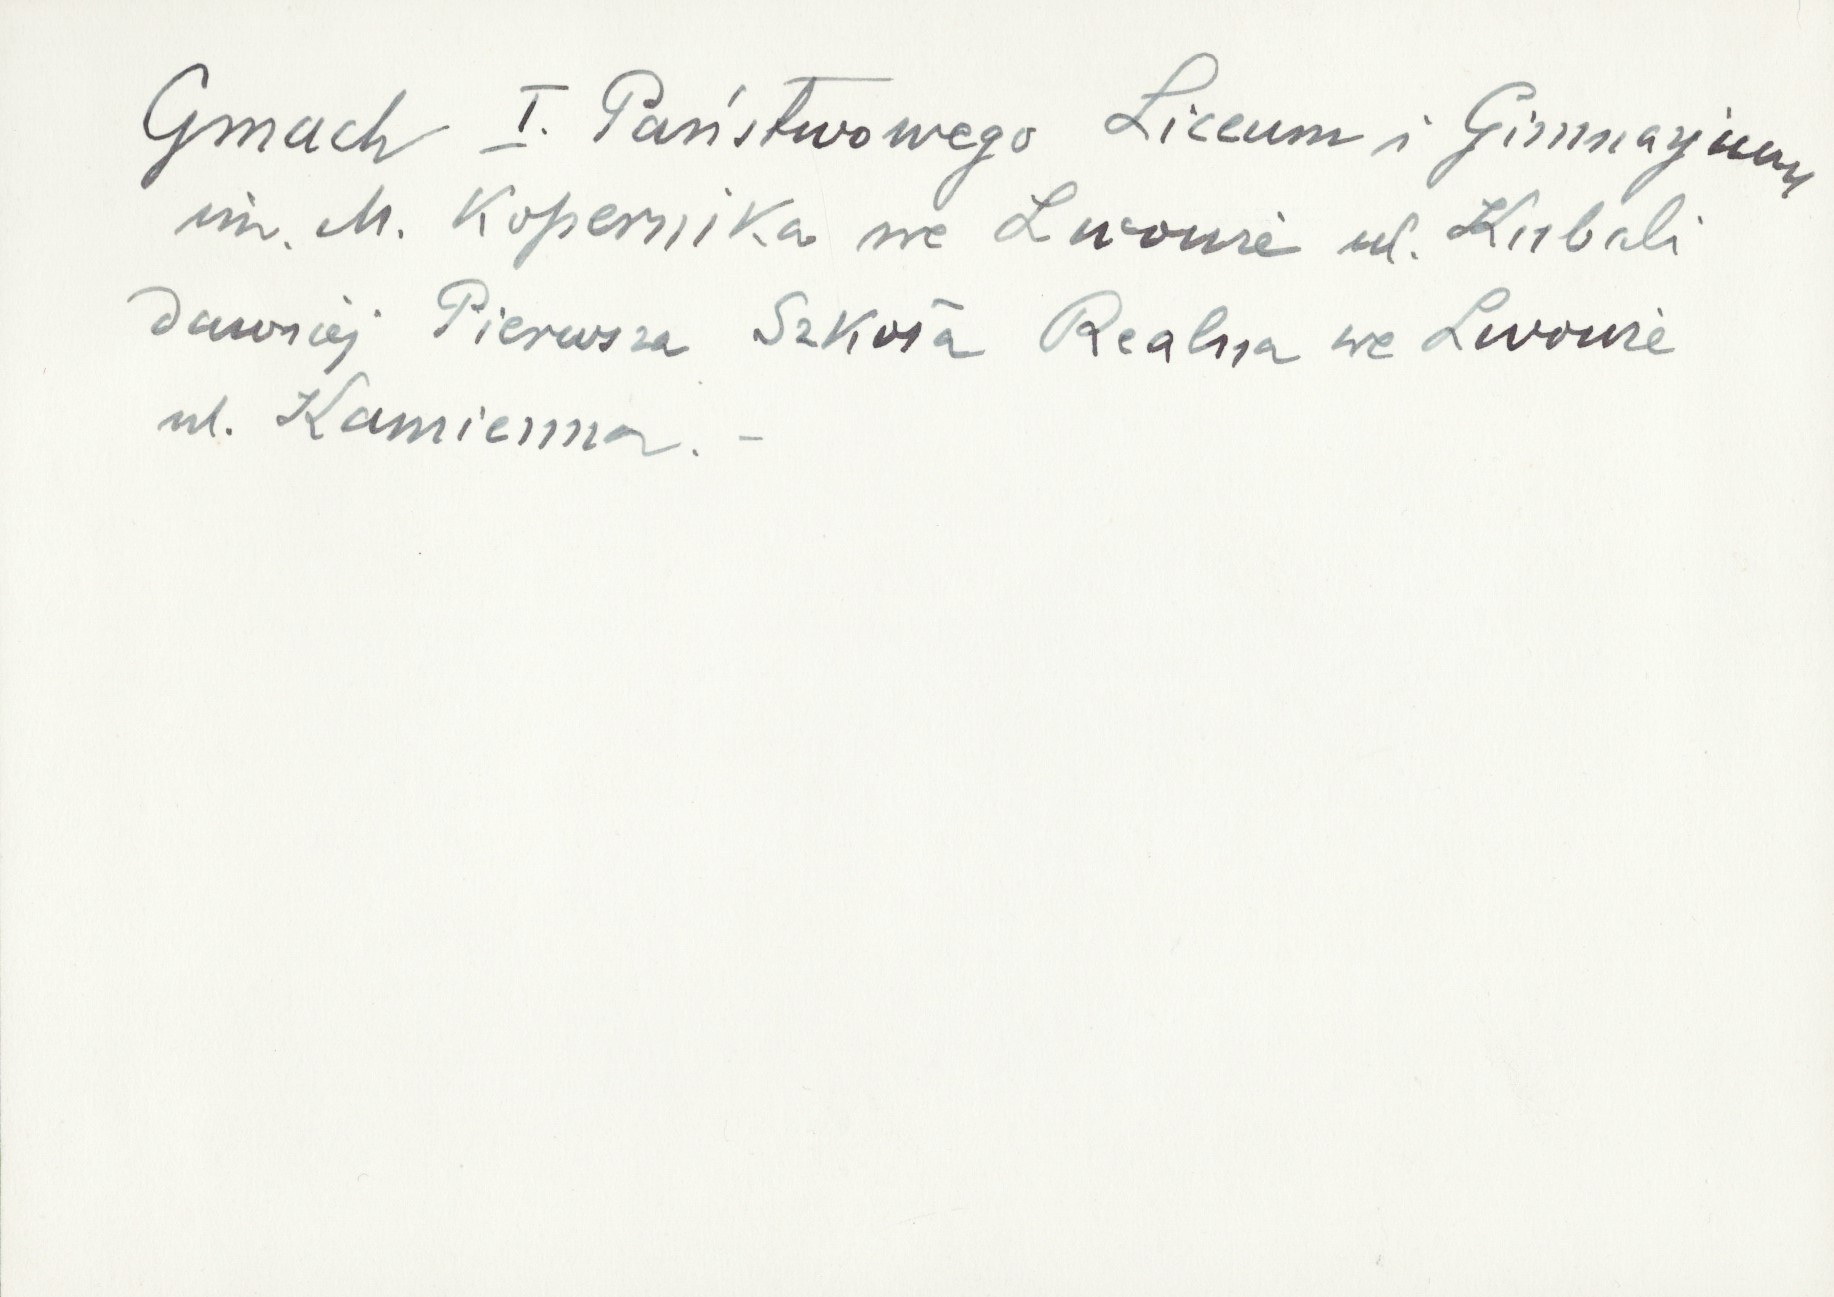 Gmach I. Państwowego Liceum i Gimnazjum
im. M. Kopernika we Lwowie ul. Kubali
dawniej Pierwsza Szkoła Realna we Lwowie
ul. Kamienna. -